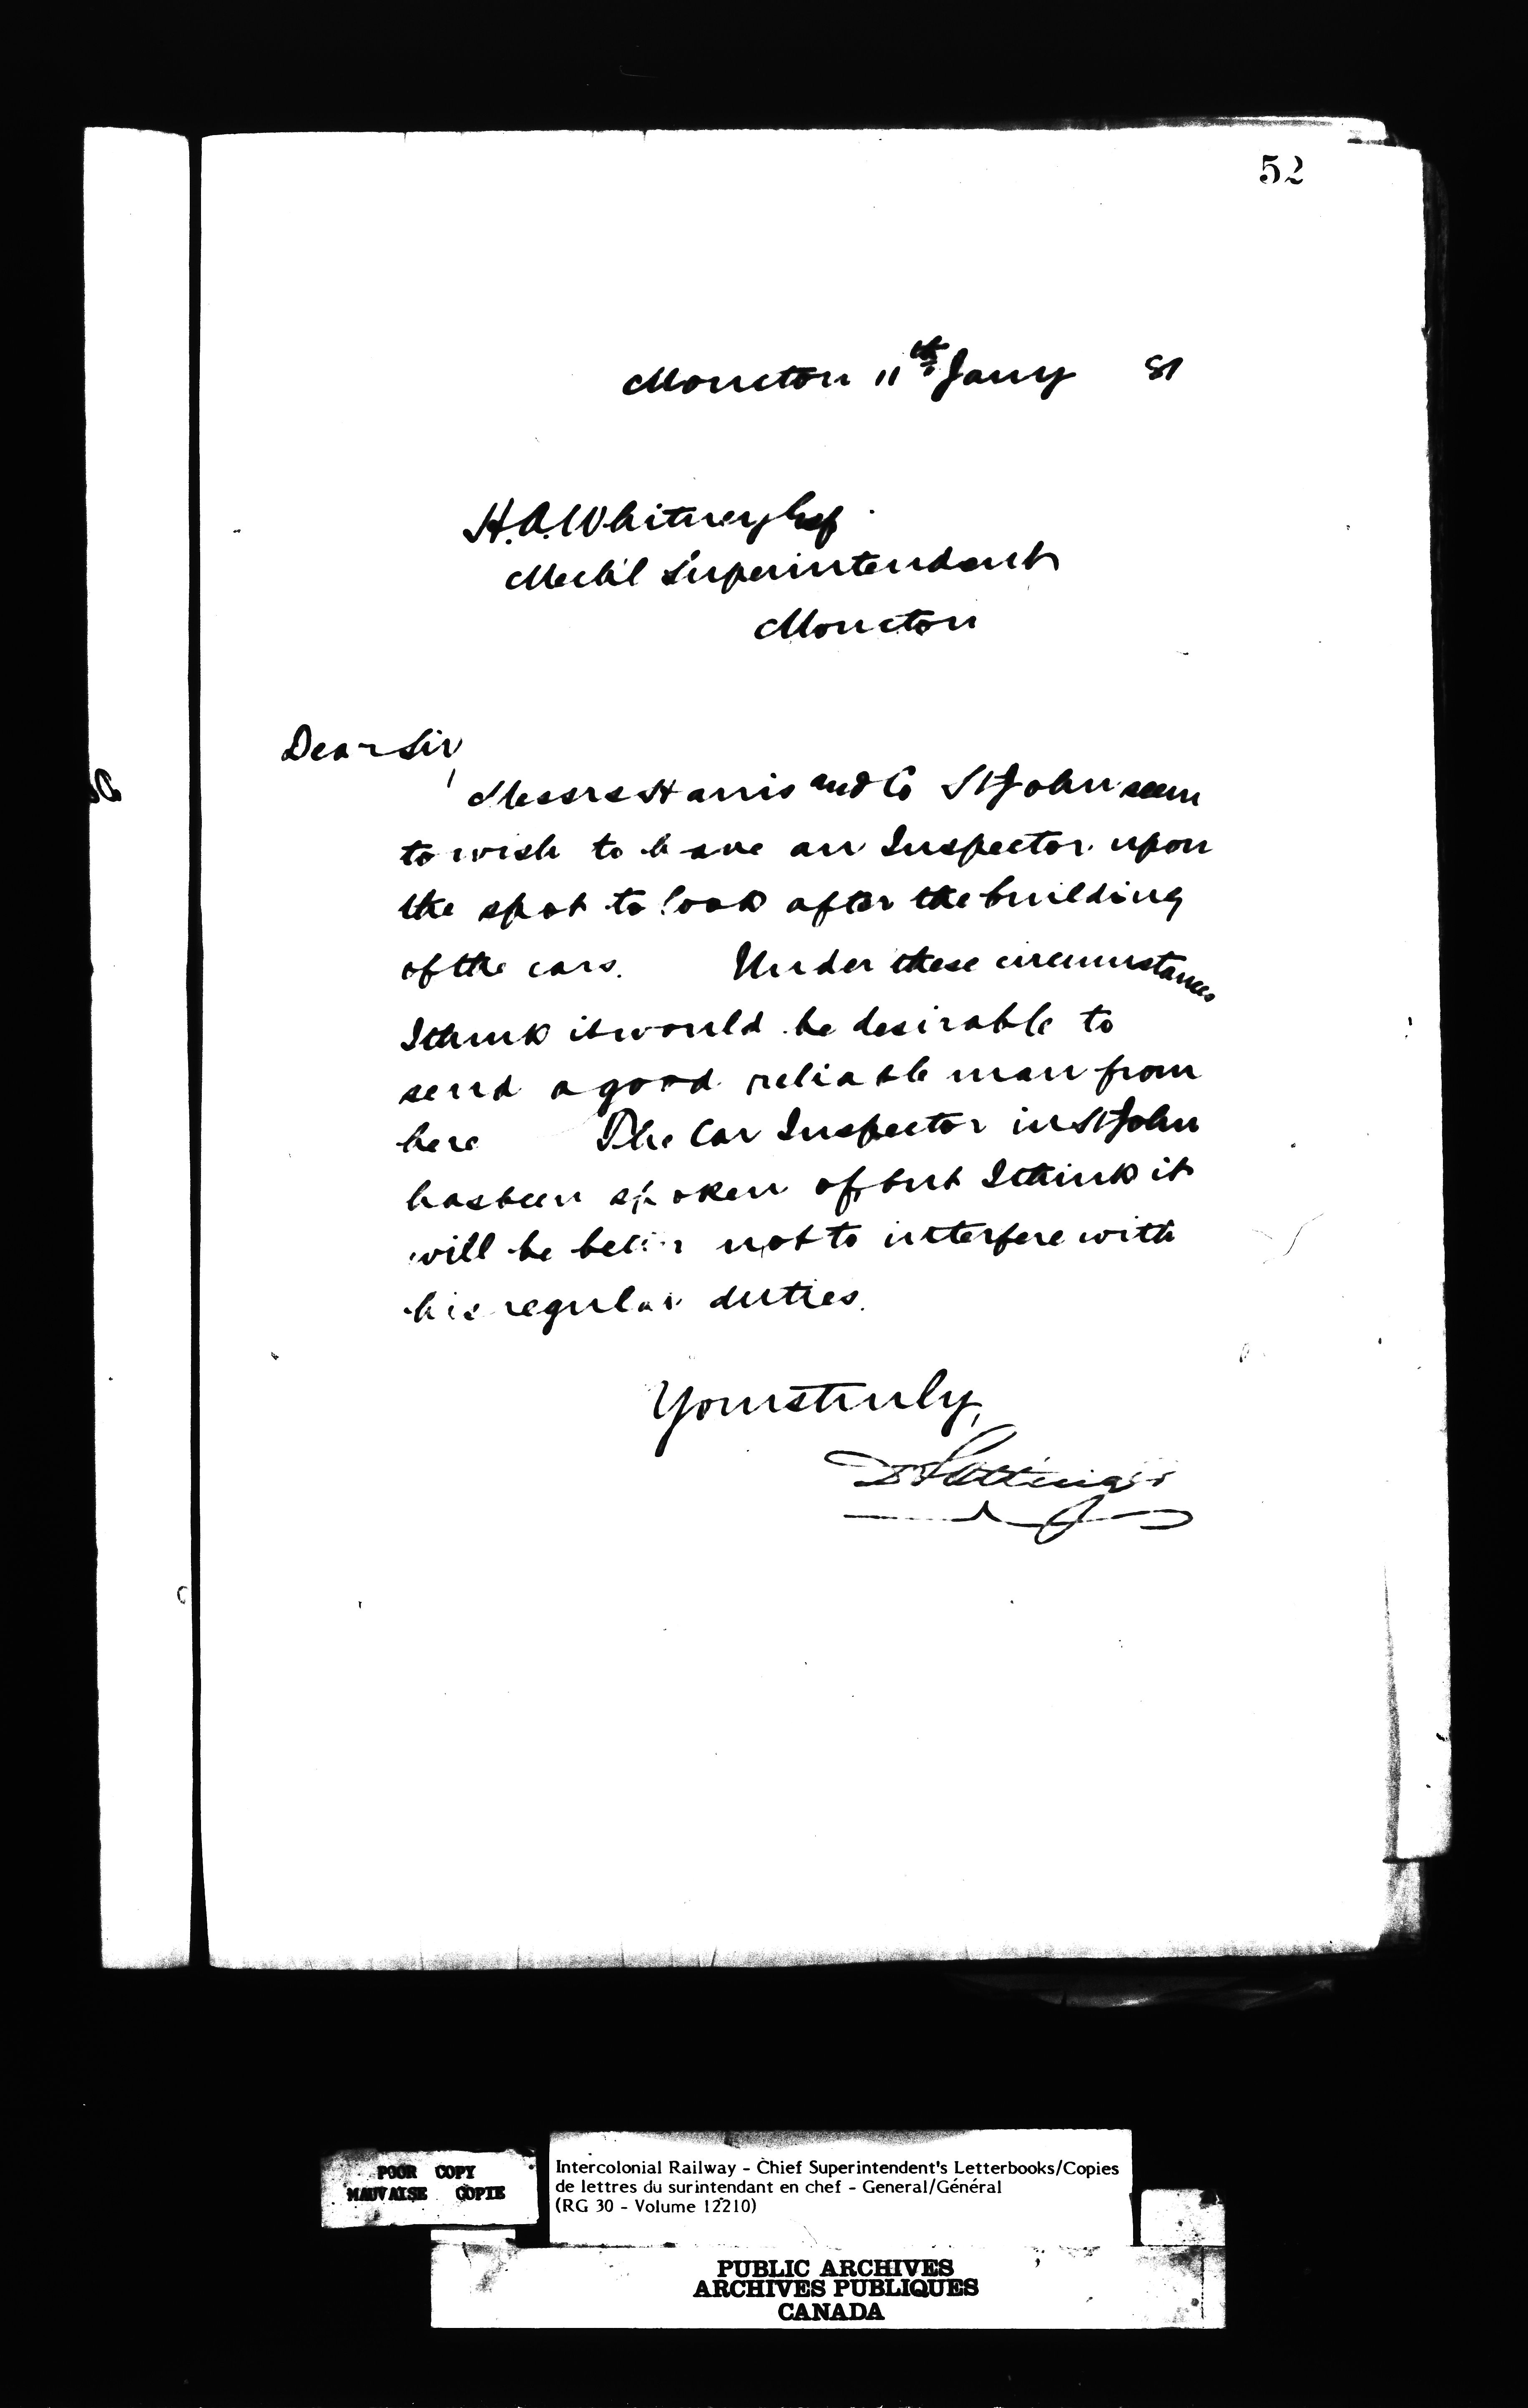 52
Moncton 11th Jany 81
H.A. Whitney Esq.
Mech'l Superintendent
Moncton
Dear Sir,
Messrs Harris and Co St John seem
to wish to have an Inspector upon
the spot to look after the building
of the cars. Under these circumstances
I think it would be desirable to
send a good reliable man from
here The Car Inspector in St John
has been spoken of, but I think it
will be better not to interfere with
his regular duties.
Yours truly,
D Pottinger
POOR COPY
MAUVAISE COPIE
Intercolonial Railway - Chief Superintendent's Letterbooks/Copies
de lettres du surintendant en chef - General/Général
(RG 30 - Volume 12210)
PUBLIC ARCHIVES
ARCHIVES PUBLIQUES
CANADA